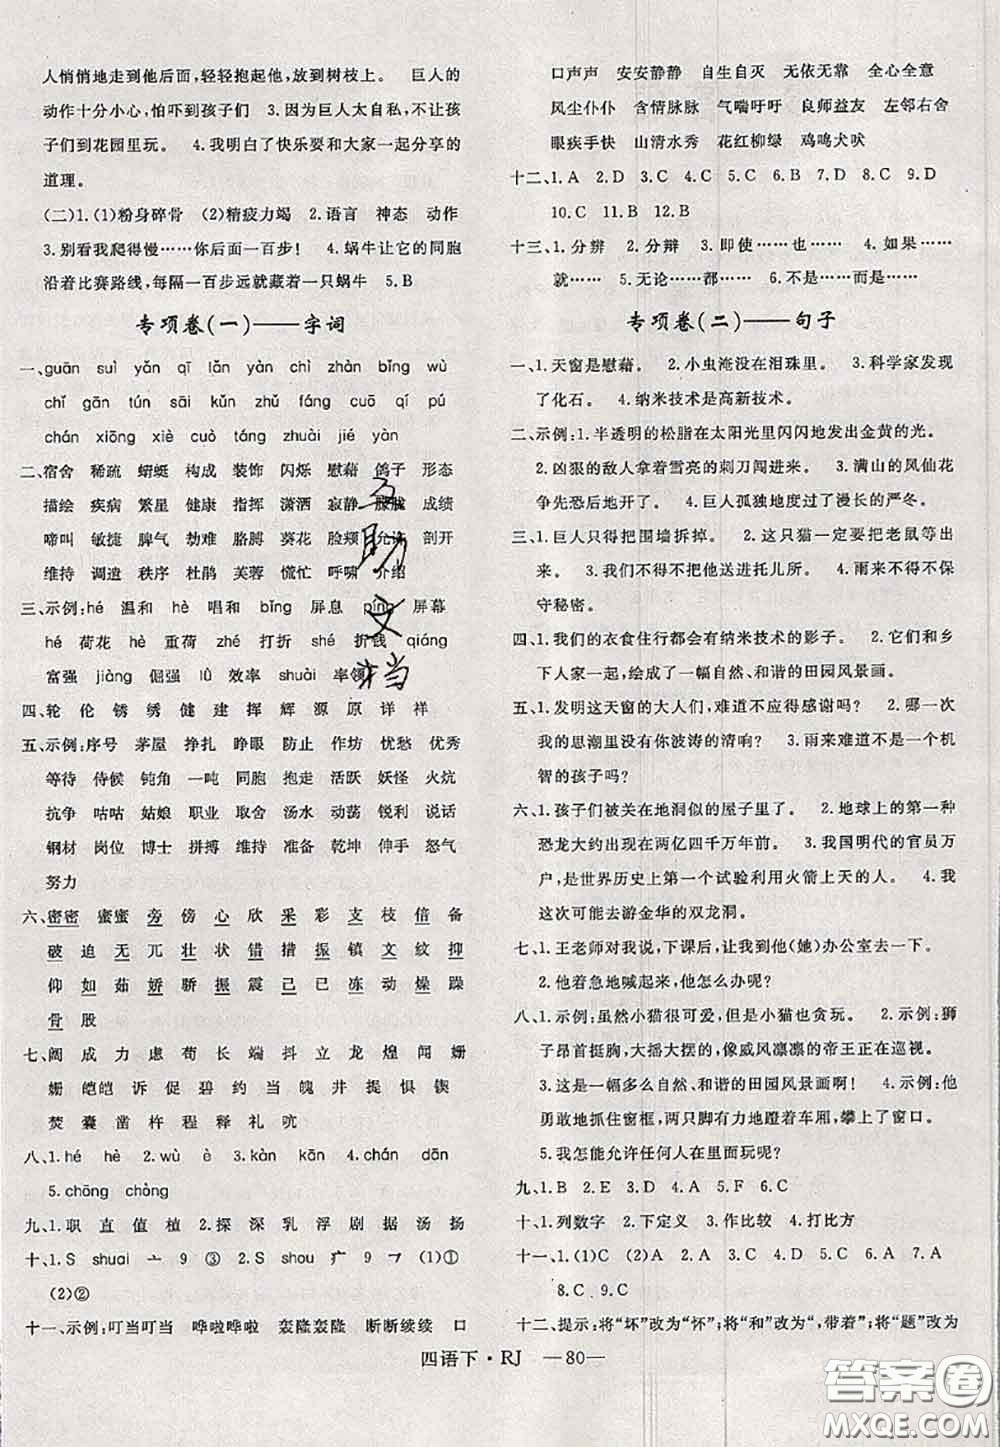 人悄悄地走到他后面,轻轻抱起他,放到树枝上。 巨人的
动作十分小心,怕吓到孩子们 3.因为巨人太自私,不让孩
子们到花园里玩。 4.我明白了快乐要和大家一起分享的
道理。
(二)1.(1)粉身碎骨 (2)精疲力竭 2.语言 神态 动作
3.别看我爬得慢……你后面一百步! 4.蜗牛让它的同胞
沿着比赛路线,每隔一百步远就藏着一只蜗牛 5.B
专项卷(一)——字词
一、guān suì yǎn qī lǎn yàn chì zhàn bǐng wù
chǐ gān tún sāi kūn zhú fáng cuō qí pú
chán xiōng xiè cuò tāng zhuài jié yàn
二、宿舍 稀疏 蜻蜓 构成 装饰 闪烁 慰藉 鸽子 形态
描绘 疾病 繁星 健康 指挥 潇洒 寂静 朦胧 成绩
啼叫 敏捷 脾气 勃难 胳膊 葵花 脸颊 允许 剖开
维持 调遣 秩序 杜鹃 芙蓉 慌忙 呼啸 介绍
三、示例:hé 温和 hè 唱和 bǐng 屏息 píng 屏幕
hé 荷花 hè 重荷 zhé 打折 shé 折钱 qiáng
富强 jiàng 倔强 lǜ 效率 shuài 率领
四、轮 伦 锈 绣 健 建 挥 辉 源 原 详 祥
五、示例:序号 茅屋 挣扎 睁眼 防止 作坊 忧愁 优秀
等待 侍候 钝角 一吨 同胞 抱走 活跃 妖怪 火炕
抗争 咕咕 姑娘 职业 取舍 汤水 动荡 锐利 说话
钢材 岗位 博士 拼搏 维持 准备 乾坤 伸手 怒气
努力
六、密密 蜜蜜 旁 傍 心 欣 采 彩 支 枝 倍 备
破 迫 无 兀 壮 状 错 措 振 镇 文 纹 抑
仰 如 茹 娇 骄 振 震 己 已 冻 动 燥 躁
骨 股
七、阔 成 力 虑 苟 长 端 抖 立 龙 煌 闻 姗
姗 皑皑 诉 促 碧 约 当 魄 井 提 惧 锲
焚 囊 凿 杵 程 释 礼 吭
八、1.hé hè 2.wù è 3.kàn kān 4.chán dān
5.chōng chòng
九、1.职 直 值 植 2.探 深 乳 浮 剧 据 汤 扬
十、1.S shuai 亠 9 ③ 2.S shou 疒 9 乛 (1)①
(2)②
十一、示例:叮当叮当 哗啦哗啦 轰隆轰隆 断断续续 口
口声声 安安静静 自生自灭 无依无靠 全心全意
风尘仆仆 含情脉脉 气喘吁吁 良师益友 左邻右舍
眼疾手快 山清水秀 花红柳绿 鸡鸣犬吠
十二、1.A 2.D 3.C 4.C 5.C 6.B 7.D 8.C 9.D
10.C 11.B 12.B
十三、1.分辨 2.分辩 3.即使……也…… 4.如果……
就…… 5.无论……都…… 6.不是……而是……
专项卷(二)——句子
一、1.天窗是慰藉。 2.小虫淹没在泪珠里。 3.科学家发现
了化石。 4.纳米技术是高新技术。
二、示例:1.半透明的松脂在太阳光里闪闪地发出金黄的光。
2.凶狠的敌人拿着雪亮的刺刀闯进来。 3.满山的凤仙花
争先恐后地开了。 4.巨人孤独地度过了漫长的严冬。
三、1.巨人只得把围墙拆掉。 2.这只猫一定要把老鼠等出
来。 3.我们不得不把他送进托儿所。 4.雨来不得不保
守秘密。
四、1.我们的衣食住行都会有纳米技术的影子。 2.它们和乡
下人家一起,绘成了一幅自然、和谐的田园风景画。
五、1.发明这天窗的大人们,难道不应得感谢吗? 2.哪一次
我的思潮里没有你波涛的清响? 3.雨来难道不是一个机
智的孩子吗?
六、1.孩子们被关在地洞似的屋子里了。 2.地球上的第一种
恐龙大约出现在两亿四千万年前。 3.我国明代的官员万
户,是世界历史上第一个试验利用火箭上天的人。 4.我
这次可能去游金华的双龙洞。
七、1.王老师对我说,下课后,让我到他(她)办公室去一下。
2.他着急地喊起来,他怎么办呢?
八、1.示例:虽然小猫很可爱,但是小猫也贪玩。 2.示例:狮
子昂首挺胸,大摇大摆的,像威风凛凛的帝王正在巡视。
3.这是一幅多么自然、和谐的田园风景画啊! 4.示例:他
勇敢地抓住窗框,两只脚有力地蹬着车厢,攀上了窗口。
5.我怎能允许任何人在里面玩呢?
九、1.B 2.E 3.D 4.A 5.F 6.C
十、1.列数字 2.下定义 3.作比较 4.打比方
十一、1.(1)C (2)A 2.A 3.C 4.D 5.A 6.A 7.A
8.C 9.C
十二、提示:将“坏”改为“怀”;将“和”改为“,带着”;将“题”改为
四语下·RJ —80—
互
助
文
档
答案圈
MXQE.COM